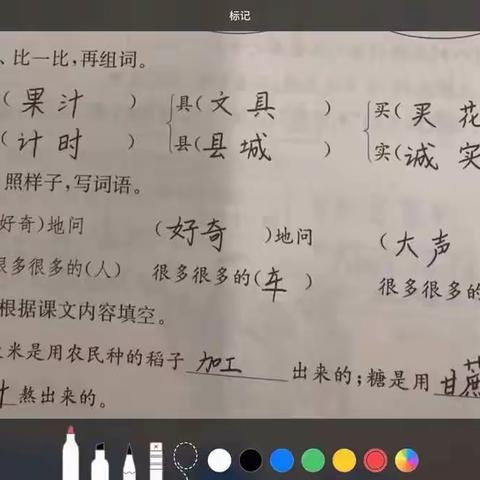 标记
、比一比,再组词。
(果汁) 具(文具) 买(买花
(计时) 县(县城) 实(诚实
照样子,写词语。
好奇)地问 (好奇)地问 (大声
很多很多的(人) 很多很多的(车) 很多很多的
根据课文内容填空。
米是用农民种的稻子加工出来的;糖是用甘蔗
汁熬出来的。